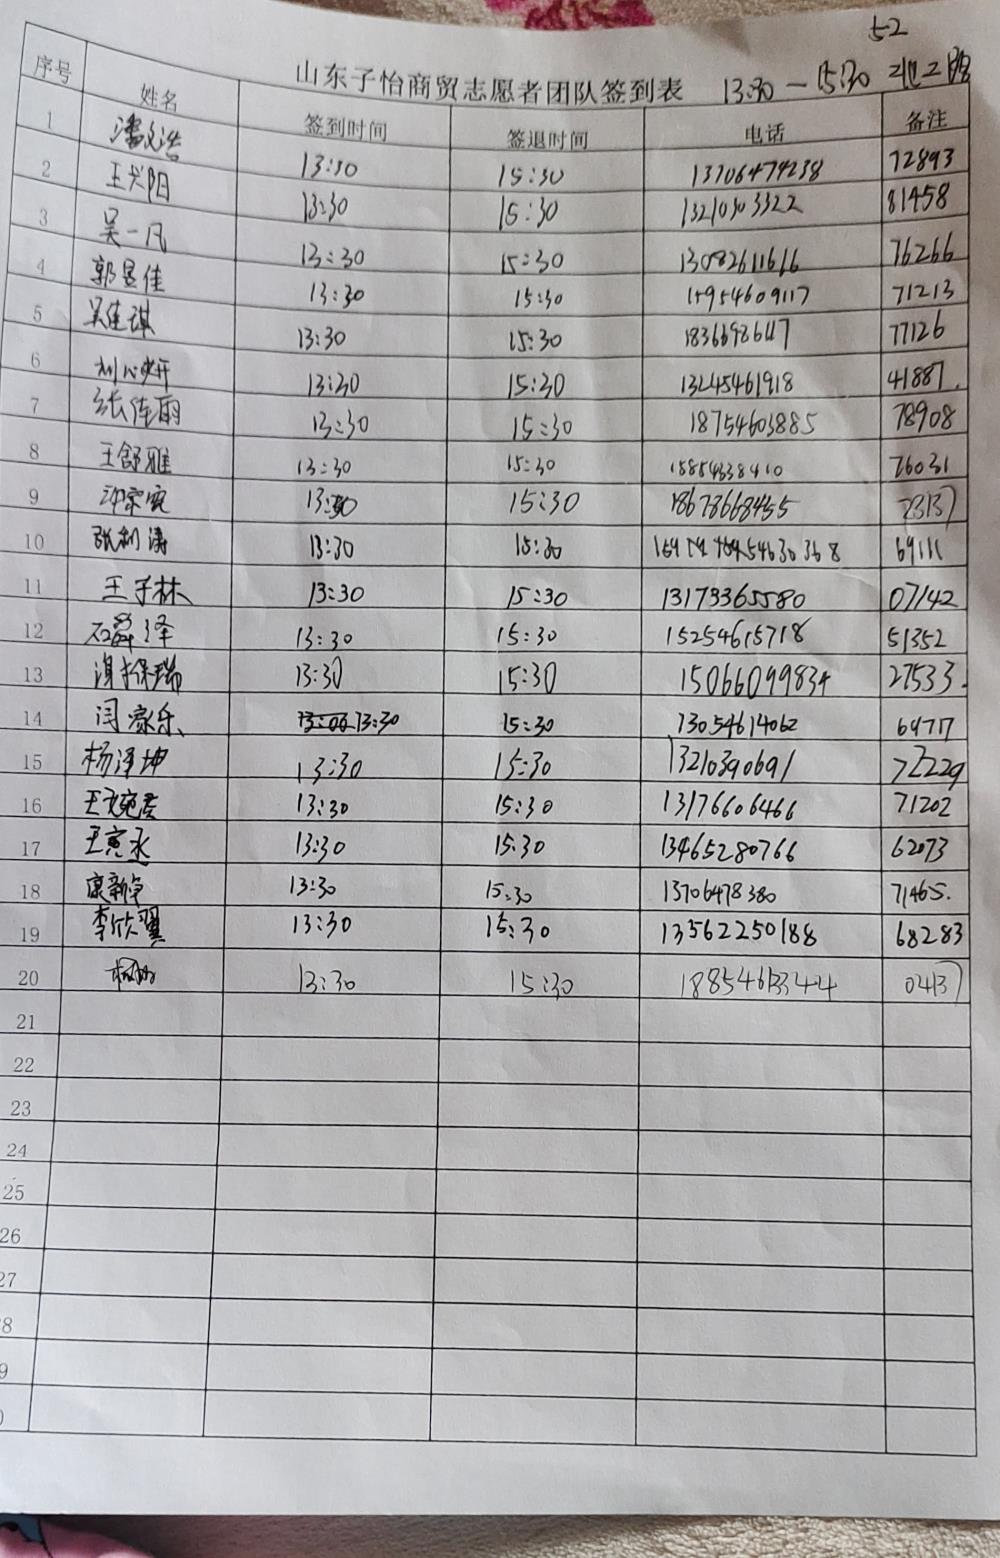 52
山东子怡商贸志愿者团队签到表 13:30—15:30 北二路
序号 姓名 签到时间 签退时间 电话 备注
1 潘文浩 13:30 15:30 13706474238 72893
2 王兴阳 13:30 15:30 13210303322 81458
3 吴一凡 13:30 15:30 13082611616 76266
4 郭昱佳 13:30 15:30 15954609117 71213
5 吴佳琪 13:30 15:30 77126
6 刘心妍 13:30 15:30 13245461918 41887.
7 张倩雨 13:30 15:30 18754603885 78908
8 王舒雅 13:30 15:30 15854338410 26031
9 13:30 15:30 18678668455 23137
10 张利涛 13:30 15:30 69111
11 王子林 13:30 15:30 13173365580 07142
12 石舜泽 13:30 15:30 15254615718 51352
13 13:30 15:30 15066099834 27533.
14 闫家乐 13:30 15:30 13054614062 64717
15 杨泽坤 13:30 15:30 13210390691 72229
16 王宛君 13:30 15:30 13176606466 71202
17 王寅永 13:30 15:30 13465280766 62073
18 康新净 13:30 15:30 13706478380 71465.
19 李欣翼 13:30 15:30 13562250188 68283
20 13:30 15:30 18854613344 04137
21
22
23
24
25
26
27
8
9